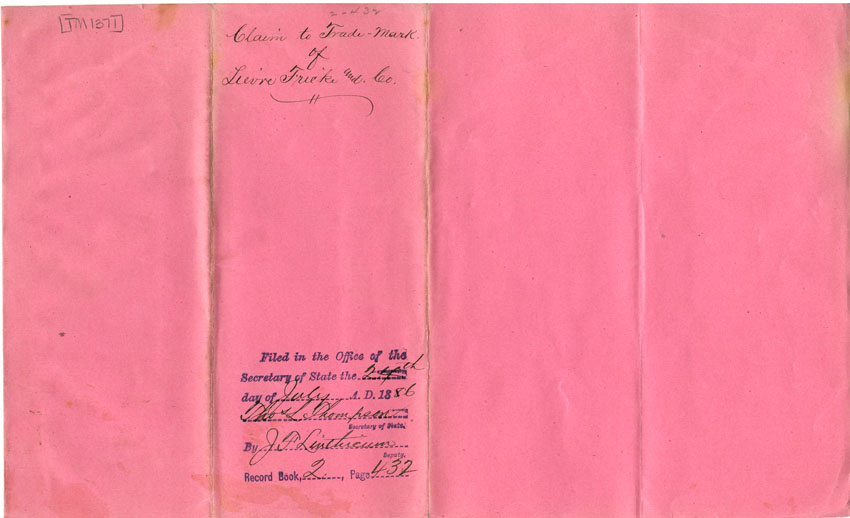 [TM1371]
2-432
Claim to Trade-Mark
of
Lievre Fricke and. Co.
Filed in the Office of the
Secretary of State the 24th
day of July A. D. 1886
Thos L. Thompson
Secretary of State.
By J. T. Linthicum
Deputy.
Record Book, 2, Page 432